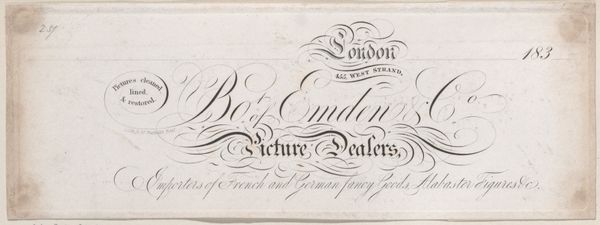 London
West Strand,
183
Pictures cleaned,
lined,
& restored.
Bot. of Emden & Co.
Picture Dealers,
Importers of French and German fancy Goods, Alabaster Figures &c.